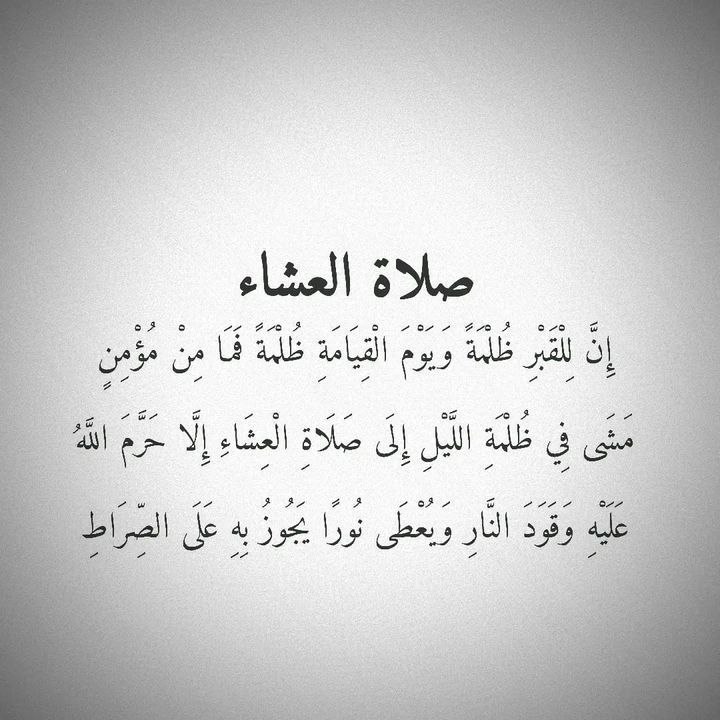 صلاة العشاء
إِنَّ لِلْقَبْرِ ظُلْمَةً وَيَوْمَ الْقِيَامَةِ ظُلْمَةً فَمَا مِنْ مُؤْمِنٍ
مَشَى فِي ظُلْمَةِ اللَّيْلِ إِلَى صَلَاةِ الْعِشَاءِ إِلَّا حَرَّمَ اللَّهُ
عَلَيْهِ وَقَوَدَ النَّارِ وَيُعْطَى نُورًا يَجُوزُ بِهِ عَلَى الصِّرَاطِ